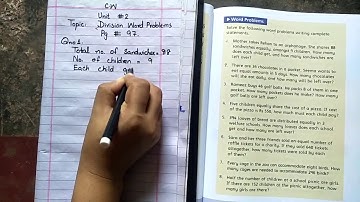 CW
Unit #2
Topic: Division Word Problems
Pg #: 97.
Qno1
Total no. of Sandwiches = 98
No. of children = 9
Each child
Word Problems
Solve the following word problems writing complete
statements.
Mother takes tiffen to an orphanage. She shares 98
sandwiches equally, amongst 9 children. How many
does each child get, and how many sandwiches are
left over?
There are 36 chocolates in a packet. Seema wants to
eat equal amounts in 5 days. How many chocolates
will she eat daily, and how many will be left over?
Rameez buys 46 golf balls. He packs 8 of them in one
packet. How many packets does he make? How many
golf balls are left over?
Five children equally share the cost of a pizza. If cost
of the pizza is Rs 550, how much must each child pay?
loaves of bread are distributed equally in 3
welfare schools. How many loaves does each school
get and how many are left over?
Sara and her three friends sold an equal number of
raffle tickets for a charity. If they sold 648 tickets
altogether, how many tickets were sold by each
of them?
Every cage in the zoo can accommodate eight birds. How
many cages are needed to accommodate 296 birds?
Half the number of children at a school picnic are girls.
If there are 152 children at the picnic altogether, how
many girls are there?